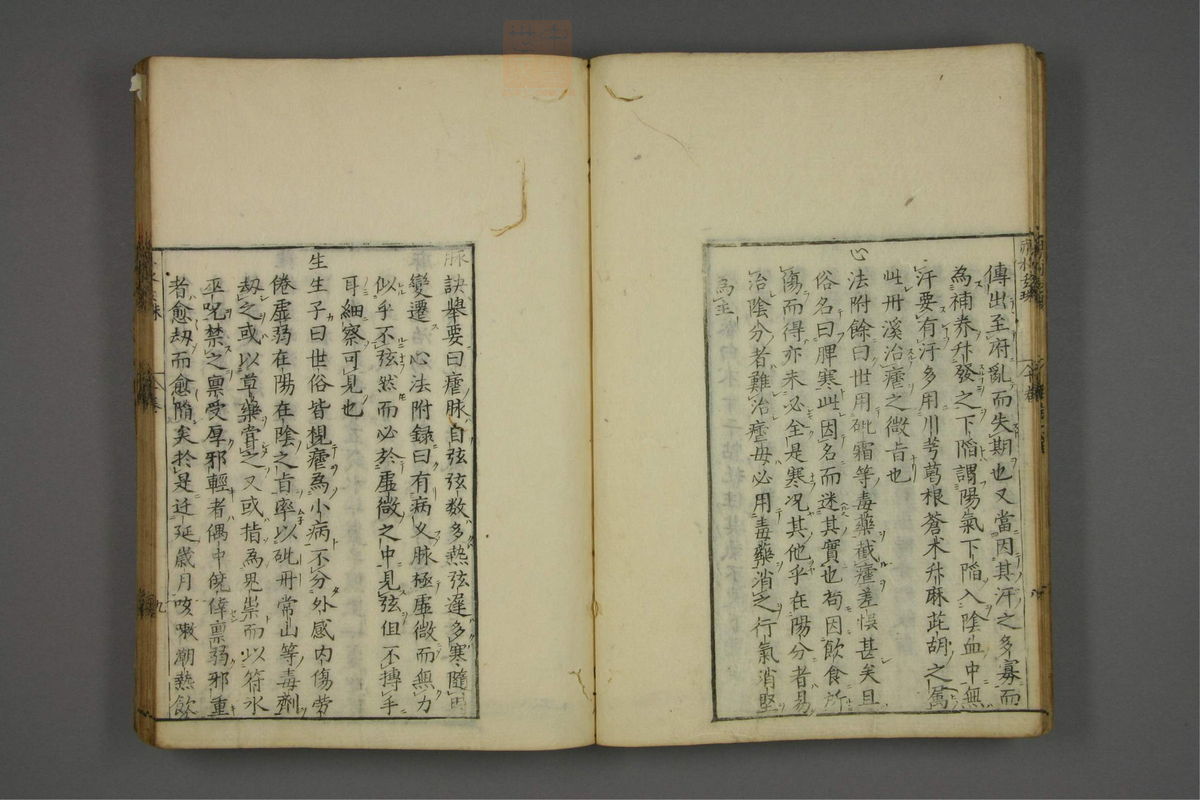 傳出至府亂而失期也又當因其汗之多寡而
為補养升發之下陷謂陽氣下陷入陰血中無
汗要有汗多用川芎葛根蒼术升麻茈胡之属
此丹溪治瘧之微旨也
心法附餘曰世用砒霜等毒藥截瘧差悞甚矣且
俗名曰脾寒此因名而迷其實也苟因飲食所
傷而得亦未必全是寒况其他乎在陽分者易
治陰分者難治瘧毋必用毒藥消之行氣消堅
為主
脉訣舉要曰瘧脉自弦弦数多熱弦遲多寒隨時
變遷 心法附録曰有病乂脉極虛微而無力
似乎不弦然而必於虛微之中見弦但不搏手
耳細察可見也
生生子曰世俗皆視瘧為小病不分外感内傷劳
倦虛弱在陽在陰之旨率以砒丹常山等毒劑
刼之或以草藥甞之又或指為鬼祟而以符水
巫呪禁之禀受厚邪輕者偶中僥倖禀弱邪重
者愈刼而愈隋矣於是迁延歳月咳嗽潮熱飲